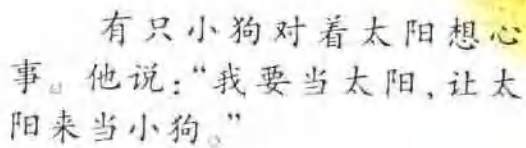 有只小狗对着太阳想心
事。他说：“我要当太阳，让太
阳来当小狗。”